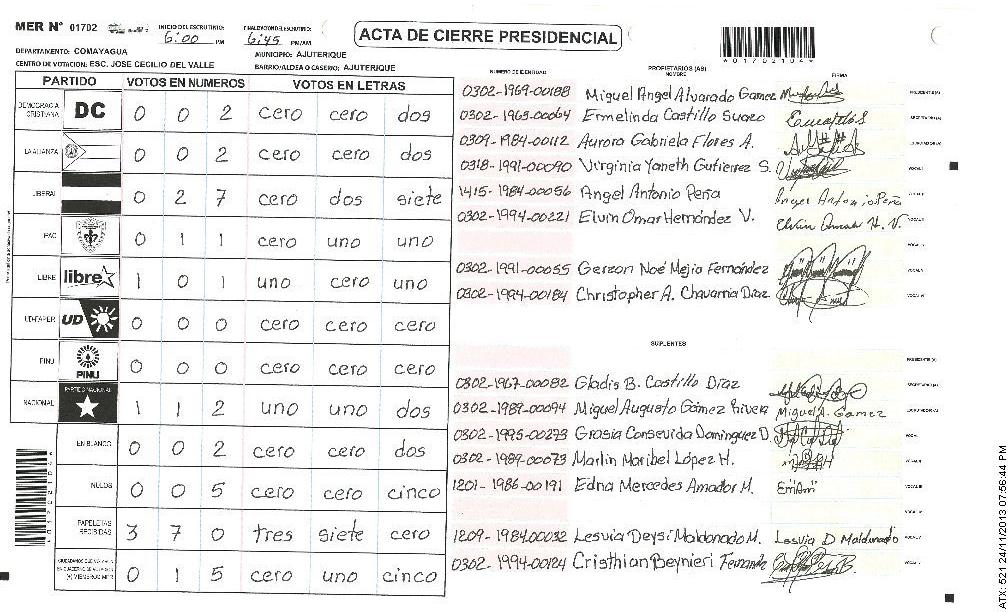 MER N° 01702 INICIO DEL ESCRUTINIO: 6:00 PM FINALIZACION DEL ESCRUTINIO: 6:45 PM/AM
ACTA DE CIERRE PRESIDENCIAL
*01702104*
DEPARTAMENTO: COMAYAGUA MUNICIPIO: AJUTERIQUE
CENTRO DE VOTACION: ESC. JOSE CECILIO DEL VALLE BARRIO/ALDEA O CASERIO: AJUTERIQUE
PARTIDO VOTOS EN NUMEROS VOTOS EN LETRAS
DEMOCRACIA CRISTIANA DC 0 0 2 cero cero dos
LA ALIANZA 0 0 2 cero cero dos
LIBERAL 0 2 7 cero dos siete
PAC 0 1 1 cero uno uno
LIBRE libre 1 0 1 uno cero uno
UD-FAPER UD 0 0 0 cero cero cero
PINU PINU 0 0 0 cero cero cero
NACIONAL PARTIDO NACIONAL 1 1 2 uno uno dos
EN BLANCO 0 0 2 cero cero dos
NULOS 0 0 5 cero cero cinco
PAPELETAS RECIBIDAS 3 7 0 tres siete cero
(+) MIEMBROS MER 0 1 5 cero uno cinco
NUMERO DE IDENTIDAD PROPIETARIOS (AS) NOMBRE FIRMA
0302-1969-00188 Miguel Angel Alvarado Gamez PRESIDENTE (A)
0302-1963-00064 Ermelinda Castillo Suazo SECRETARIO (A)
0309-1984-00112 Aurora Gabriela Flores A. ESCRUTADOR (A)
0318-1991-00090 Virginia Yaneth Gutierrez S. VOCAL I
1415-1984-00056 Angel Antonio Peña Angel Antonio Peña
0302-1994-00221 Elvin Omar Hernández V. Elvin Omar H. V.
0302-1991-00055 Gerzon Noé Mejia Fernández
0302-1994-00184 Christopher A. Chavarria Diaz
SUPLENTES
PRESIDENTE (A)
0302-1967-00082 Gladis B. Castillo Diaz SECRETARIO (A)
0302-1989-00094 Miguel Augusto Gómez Rivera Miguel A. Gamez ESCRUTADOR (A)
0302-1995-00273 Grosia Consevida Dominguez D.
0302-1989-00073 Marlin Maribel López H.
1201-1986-00191 Edna Mercedes Amador M.
1209-1984-00032 Lesvia Deysi Maldonado M. Lesvia D Maldonado
0302-1994-00124 Cristhian Beynieri Fernande
ATX: 521 24/11/2013 07:56:44 PM